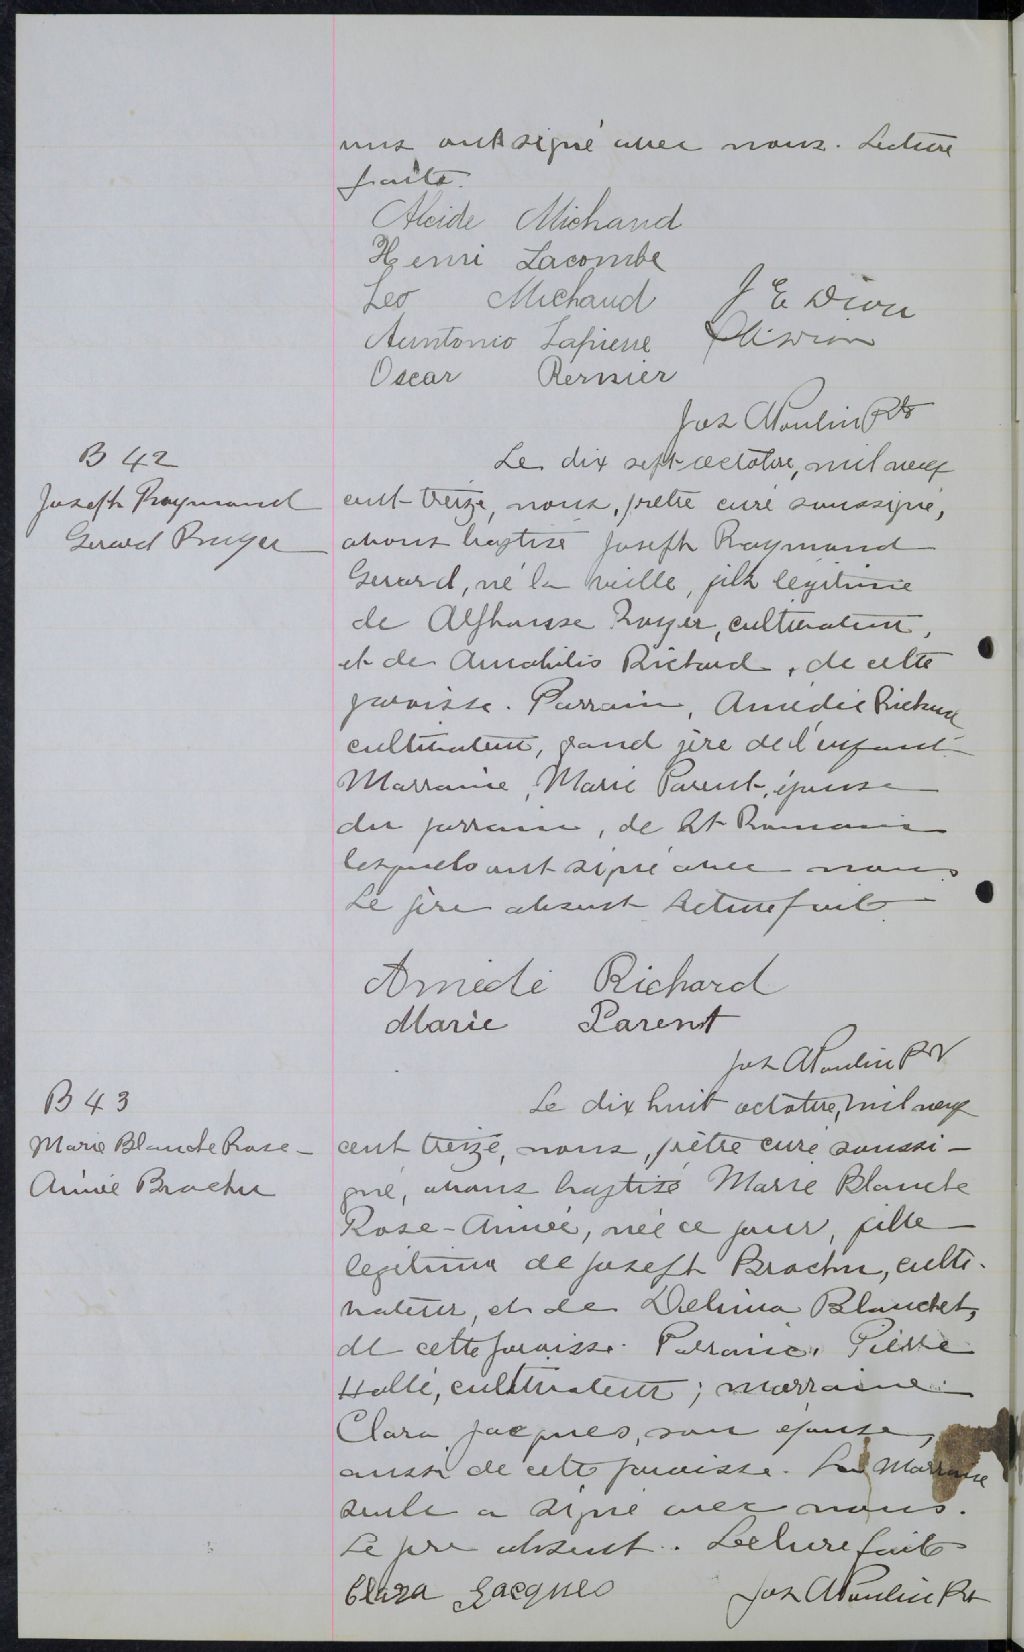 uns ont signé avec nous. Lecture
faite.
Alcide Michaud
Henri Lacombe
Leo Michaud J E Dion
Auntonio Lapierre
Oscar Bernier
Jos A Poulin Ptr
B 42
Joseph Raymond
Gerard Royer
Le dix sept octobre, mil neuf
cent treize, nous, prêtre curé soussigné,
avons baptisé Joseph Raymond
Gerard, né la veille, fils légitime
de Alphonse Royer, cultivateur,
et de Amabilis Richard, de cette
paroisse. Parrain, Amédée Richard
cultivateur, grand père de l'enfant
Marraine, Marie Parent, épouse
du parrain, de St Romain
lesquels ont signé avec nous
Le père absent Lecture faite
Amédé Richard
Marie Parent
Jos A Poulin Ptr
B 43
Marie Blanche Rose-
Aimée Brochu
Le dix huit octobre, mil neuf
cent treize, nous, prêtre curé soussi-
gné, avons baptisé Marie Blanche
Rose-Aimée, née ce jour, fille
légitime de Joseph Brochu, culti-
vateur, et de Delima Blanchet,
de cette paroisse. Parrain, Pierre
Hallé, cultivateur; marraine
Clara Jacques, son épouse,
aussi de cette paroisse. La Marraine
seule a signé avec nous.
Le père absent. Lecture faite
Clara Jacques Jos A Poulin Ptr